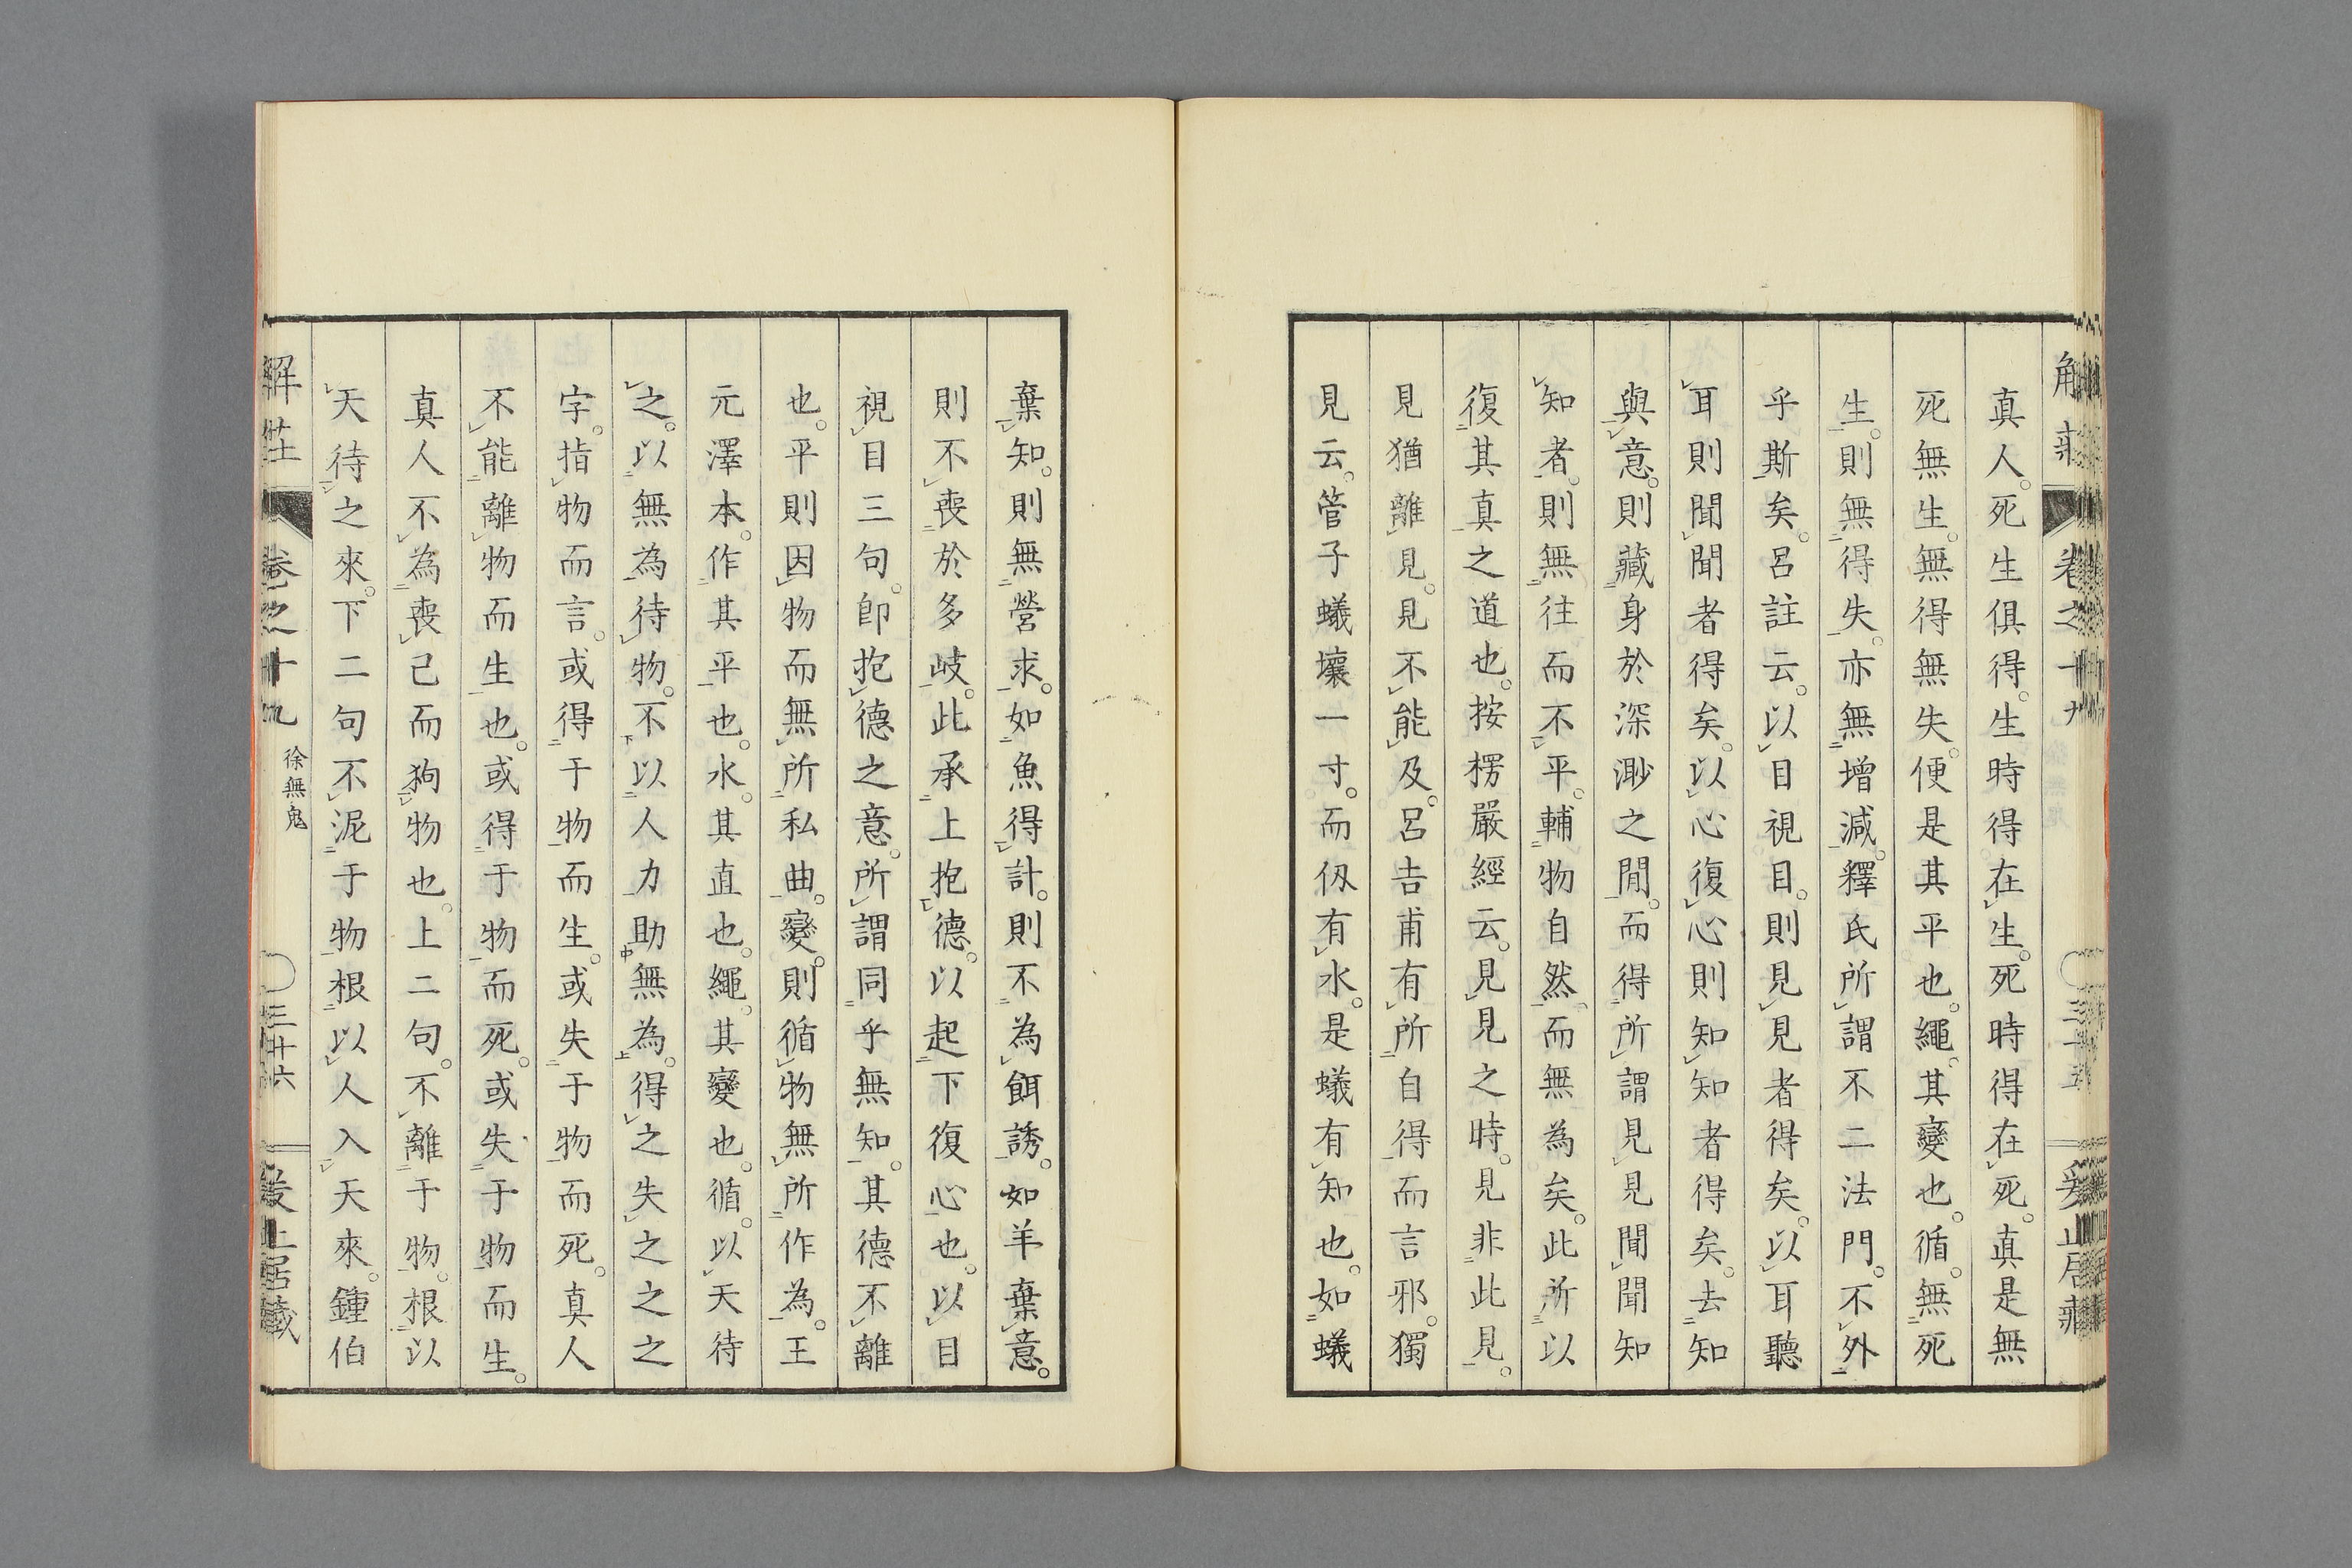 真人。死生俱得。生時得在生。死時得在死。真是無
死無生。無得無失。便是其平也。繩。其變也。循。無死
生。則無得失。亦無增減。釋氏所謂不二法門。不外
乎斯矣。呂註云。以目視目。則見見者得矣。以耳聽
耳則聞聞者得矣。以心復心則知知者得矣。去知
與意。則藏身於深渺之間。而得所謂見見聞聞知
知者。則無往而不平。輔物自然。而無為矣。此所以
復其真之道也。按楞嚴經云。見見之時。見非此見。
見猶離見。見不能及。呂吉甫有所自得而言邪。獨
見云。管子蟻壤一寸。而仭有水。是蟻有知也。如蟻
棄知。則無營求。如魚得計。則不為餌誘。如羊棄意。
則不喪於多岐。此承上抱德。以起下復心也。以目
視目三句。卽抱德之意。所謂同乎無知。其德不離
也。平則因物而無所私曲。變則循物無所作為。王
元澤本。作其平也。水。其直也。繩。其變也。循。以天待
之。以無為待物。不以人力助無為。得之失之之之
字。指物而言。或得于物而生。或失于物而死。真人
不能離物而生也。或得于物而死。或失于物而生。
真人不為喪己而狥物也。上二句。不離于物。根以
天待之來。下二句不泥于物。根以人入天來。鍾伯
解莊 卷之十九 徐無鬼 三十六